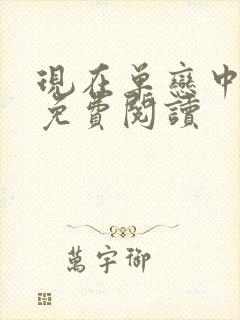 現在單戀中
免費閱讀
萬宇御